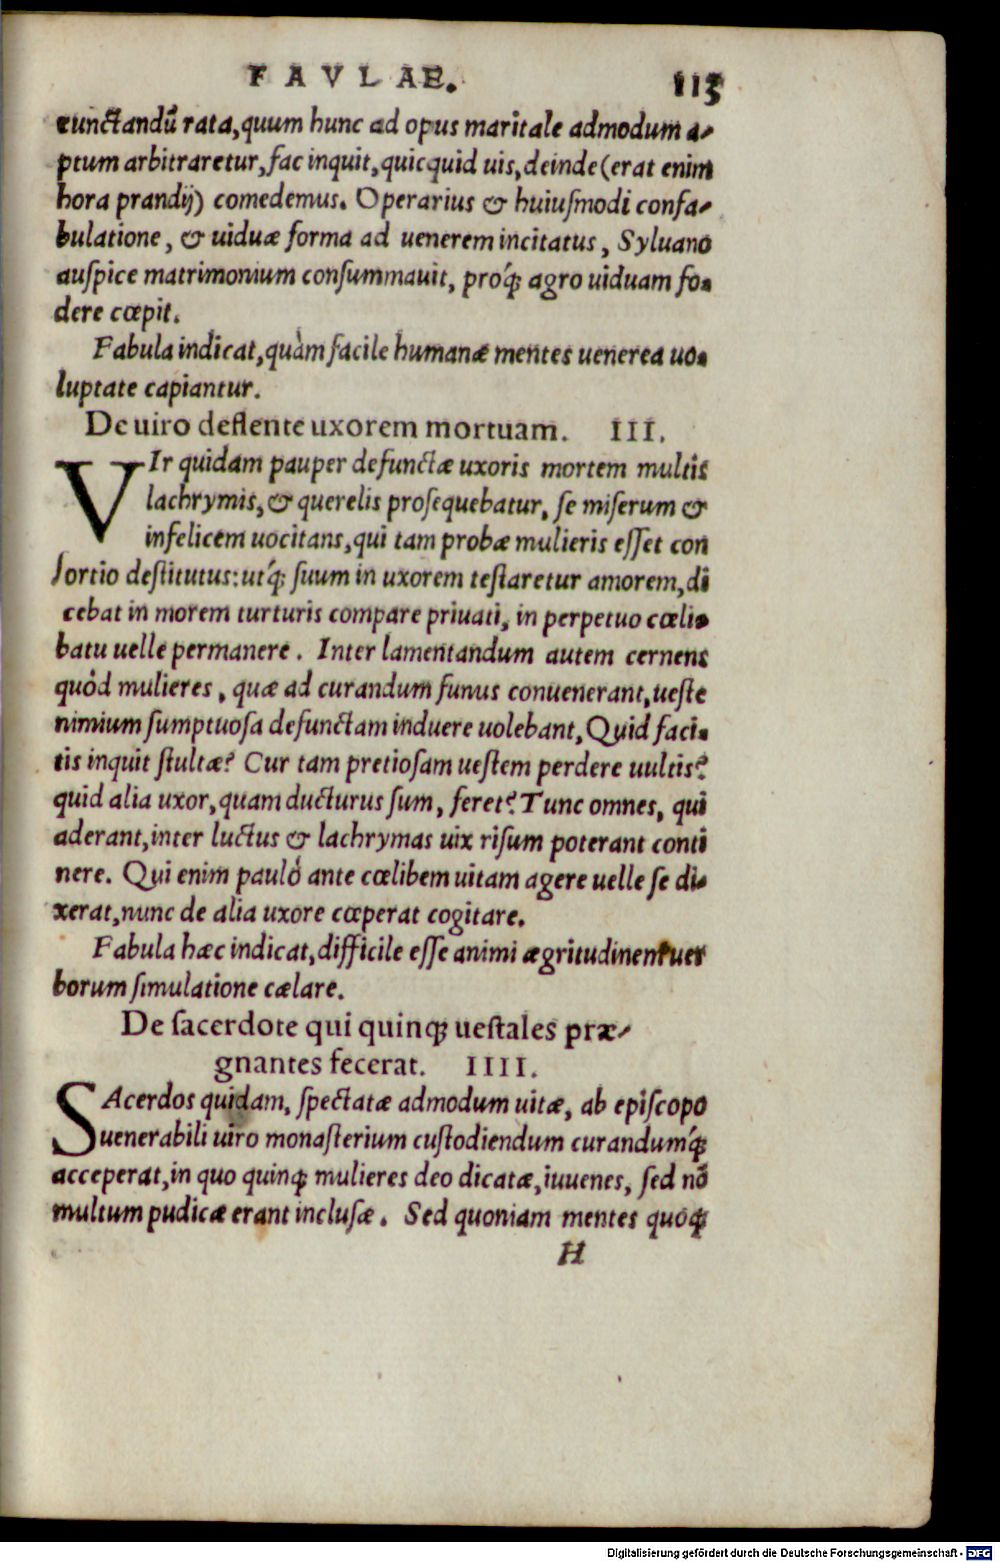 FAVLAE. 113
cunctandū rata, quum hunc ad opus maritale admodum a-
ptum arbitraretur, fac inquit, quicquid uis, deinde (erat enim
hora prandij) comedemus. Operarius & huiuſmodi confa-
bulatione, & uiduæ forma ad uenerem incitatus, Syluano
auſpice matrimonium conſummauit, proq́ꝫ agro uiduam fo-
dere cœpit.
Fabula indicat, quàm facile humanæ mentes uenerea uo-
luptate capiantur.
De uiro deflente uxorem mortuam. III.
VIr quidam pauper defunctæ uxoris mortem multis
lachrymis, & querelis proſequebatur, ſe miſerum &
infelicem uocitans, qui tam probæ mulieris eſſet con
ſortio deſtitutus: utq́ꝫ ſuum in uxorem teſtaretur amorem, di
cebat in morem turturis compare priuati, in perpetuo cœli-
batu uelle permanere. Inter lamentandum autem cernens
quòd mulieres, quæ ad curandum funus conuenerant, ueſte
nimium ſumptuoſa defunctam induere uolebant, Quid faci-
tis inquit ſtultæ? Cur tam pretioſam ueſtem perdere uultis?
quid alia uxor, quam ducturus ſum, feret? Tunc omnes, qui
aderant, inter luctus & lachrymas uix riſum poterant conti
nere. Qui enim paulò ante cœlibem uitam agere uelle ſe di-
xerat, nunc de alia uxore cœperat cogitare.
Fabula hæc indicat, difficile eſſe animi ægritudinem uer
borum ſimulatione cælare.
De ſacerdote qui quinqꝫ ueſtales præ-
gnantes fecerat. IIII.
SAcerdos quidam, ſpectatæ admodum uitæ, ab epiſcopo
uenerabili uiro monaſterium cuſtodiendum curandumq́ꝫ
acceperat, in quo quinqꝫ mulieres deo dicatæ, iuuenes, ſed nō
multum pudicæ erant incluſæ. Sed quoniam mentes quoqꝫ
H
Digitalisierung gefördert durch die Deutsche Forschungsgemeinschaft - DFG